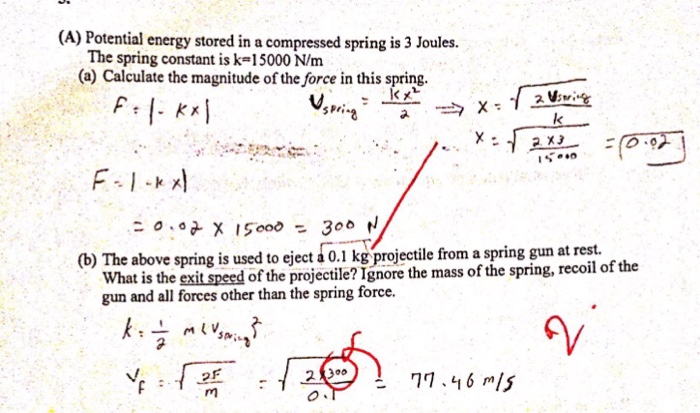 (A) Potential energy stored in a compressed spring is 3 Joules.
The spring constant is k=15000 N/m
(a) Calculate the magnitude of the force in this spring.
F = |- kx| U spring = kx²/2 ⟹ x = √(2 Uspring/k)
x = √(2x3/15000) = 0.02
F = |-kx|
= 0.02 x 15000 = 300 N
(b) The above spring is used to eject a 0.1 kg projectile from a spring gun at rest.
What is the exit speed of the projectile? Ignore the mass of the spring, recoil of the
gun and all forces other than the spring force.
k = 1/2 m (Vspring)²
Vf = √(2F/m) = √(2x300/0.1) = 77.46 m/s